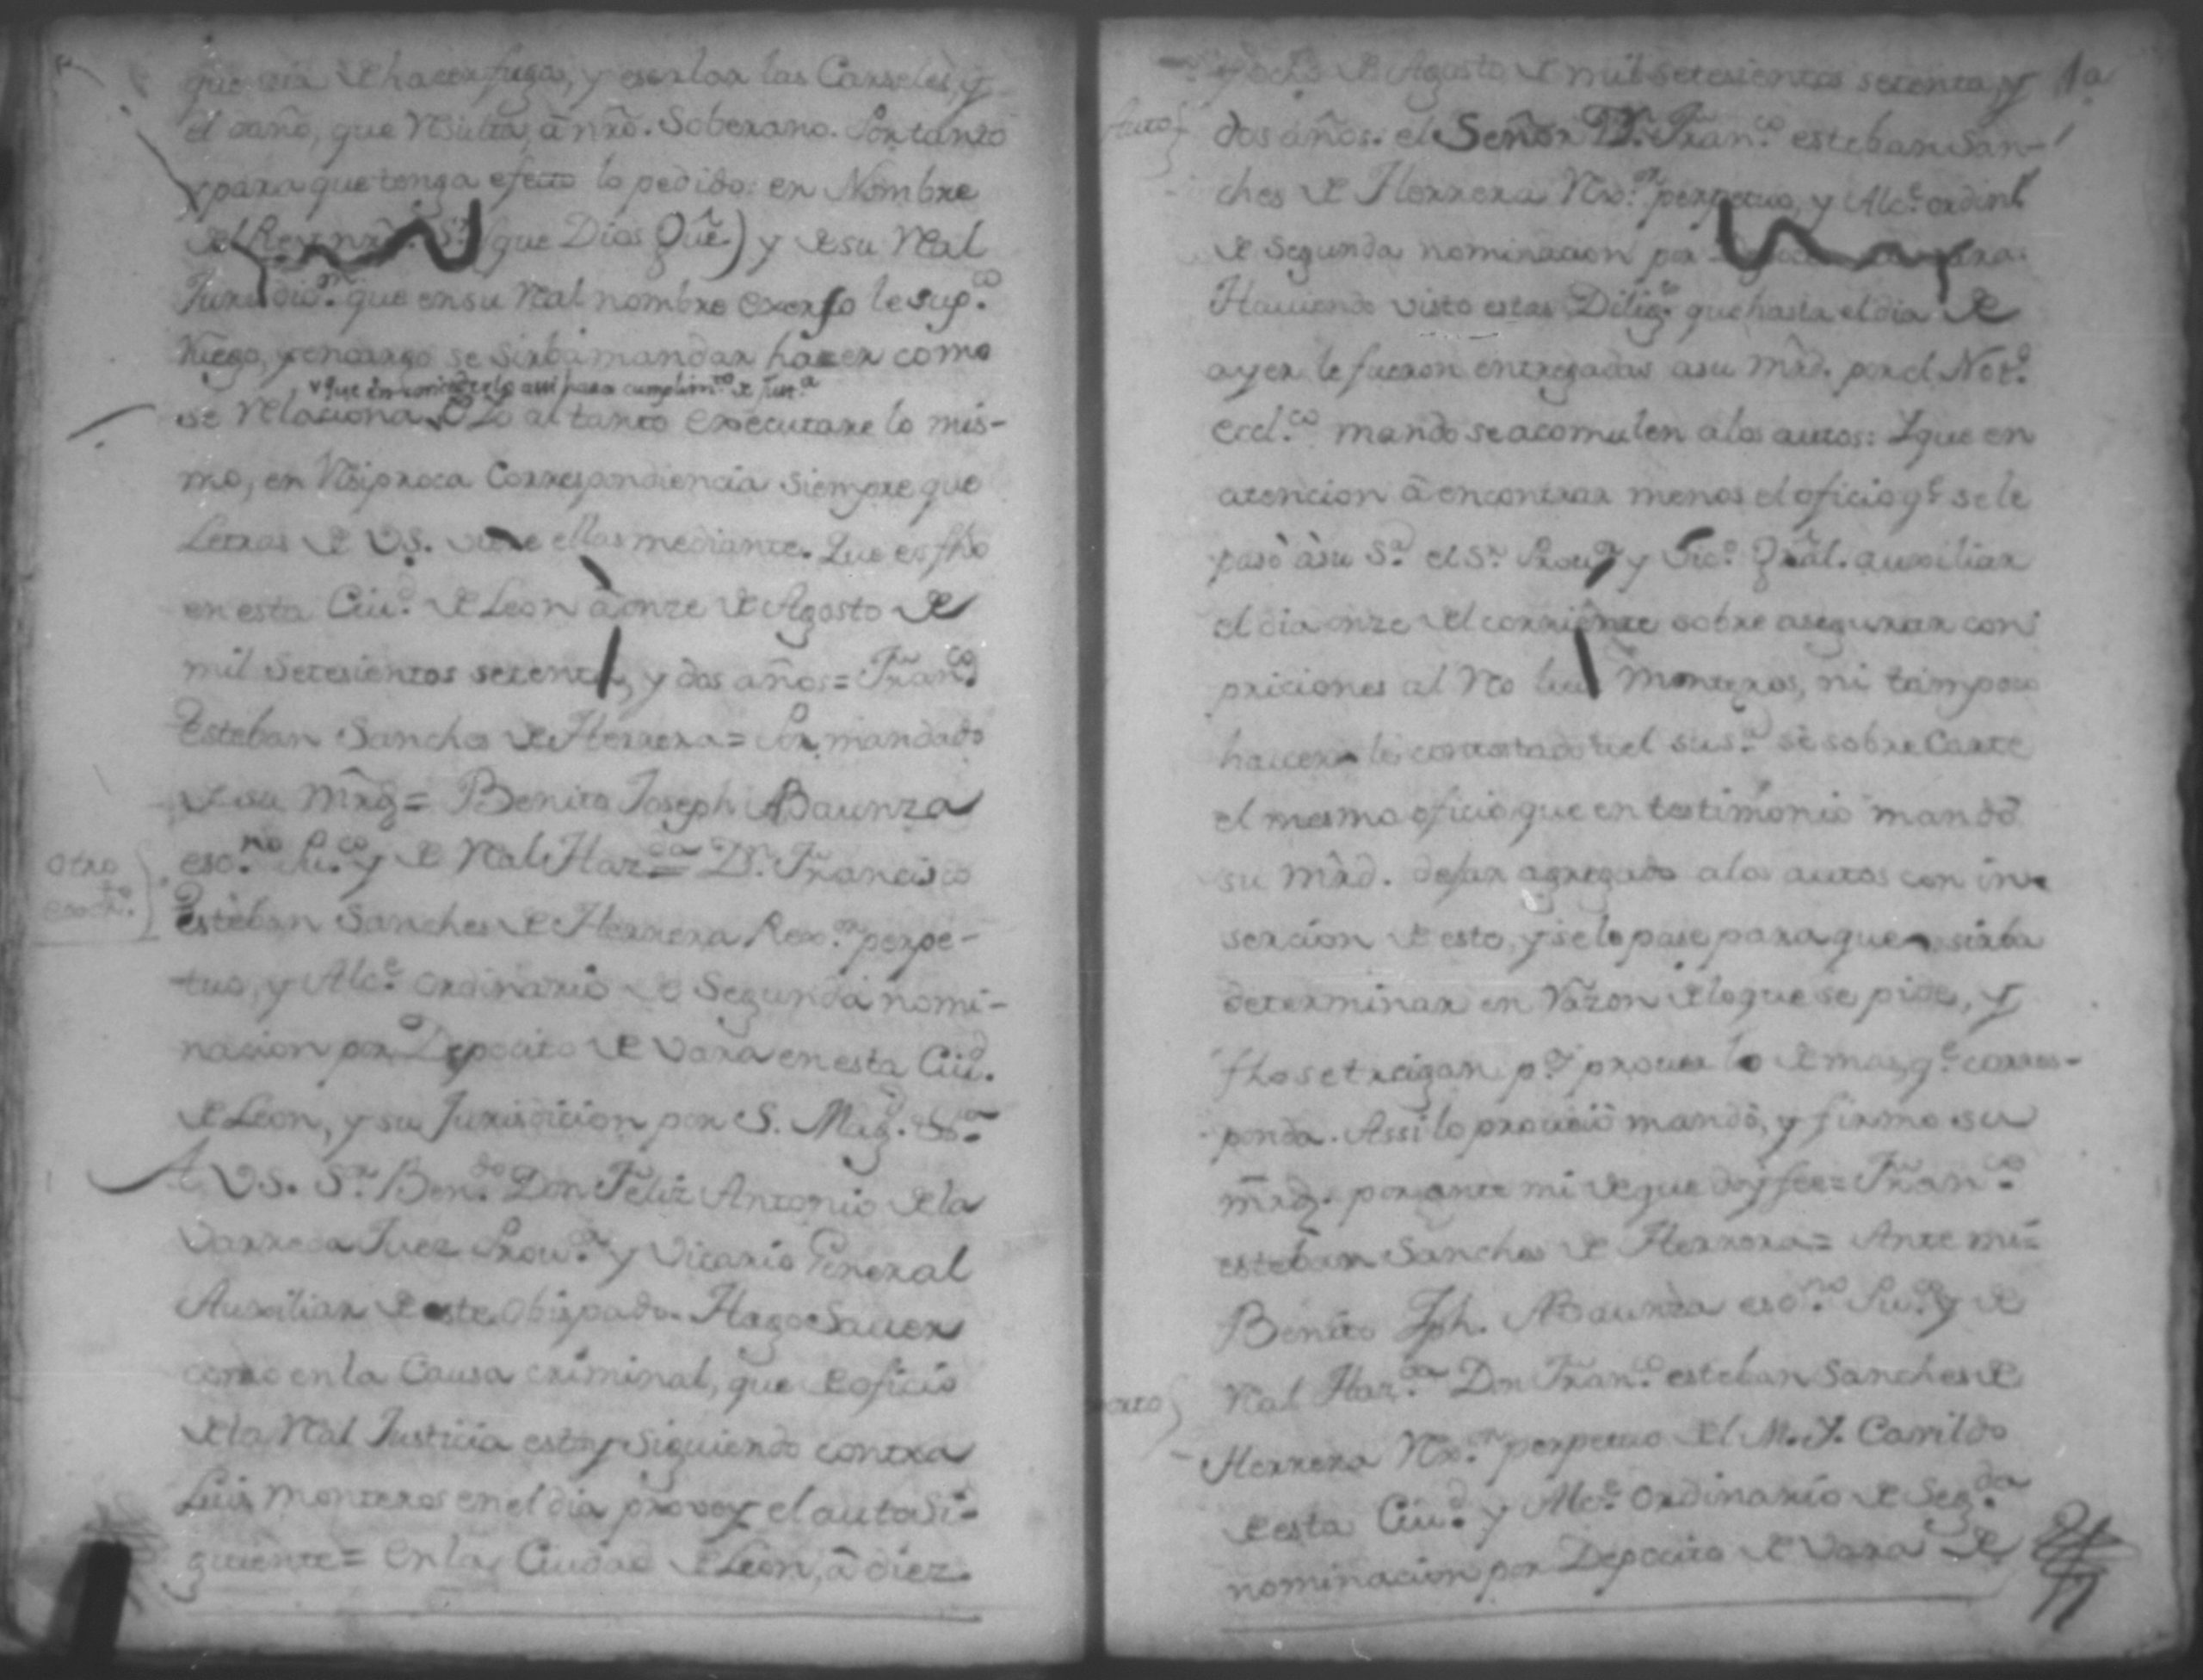 que era de hacer fuga, y escalar las Carseles, y
el daño, que Resulta, â nrô. Soberano. Por tanto
y para que tenga efecto lo pedido: en Nombre
del Rey nrô. Sr. (que Dios Guê.) y de su Real
Jurisdicn. que en su Real nombre exerso le supco.
Ruego, y encargo se sirba mandar hazer como
que en concederlo assi hara cumplimto. de Justa.
se Relaciona, Yo al tanto executare lo mis-
mo, en Resiproca Correspondiencia siempre que
Letras de VS. viere ellas mediante. Que es fho
en esta Ciud. de Leon â onze de Agosto de
mil Setesientos setenta, y dos años = Franco.
Esteban Sanches de Herrera = Por mandado
de su Mrd = Benito Joseph Abaunza
escno. Puco. y de Real Hazda = Dn. Francisco
Otro
exorto.
Esteban Sanches de Herrera Rexor. perpe-
tuo, y Alce. ordinario de Segunda nomi-
nacion por Depocito de Vara en esta Ciud.
de Leon, y su Jurisdicion por S. Mag.
A VS. Sr. Bendo. Don Felix Antonio de la
Varreda Juez Provor. y Vicario General
Auxiliar de este Obispado. Hago Saver
como en la Causa criminal, que de oficio
de la Real Justicia estoy Siguiendo contra
Luis Monteros en el dia provey el auto Si-
guiente = En la Ciudad de Leon, â diez
y ocho de Agosto de mil setesientos setenta, y
Auto
dos años: el Señor Dn. Franco. esteban San-
ches de Herrera Rexor. perpetuo, y Alce. ordinl
de Segunda nominacion por
Haviendo visto estas Diligs. que hasta el dia de
ayer le fueron entregadas a su Mrd. por el Noto.
eccl.co mando se acomulen a los autos: Y que en
atencion â encontrar menos el oficio qe. se le
pasô â su Sa. el Sr. Provor y Vico. Gral. auxiliar
el dia onze del corriente sobre asegurar con
priciones al Reo Luis Monteros, ni tampoco
haverle contestado el suso. se sobre Carte
el mesmo oficio que en testimonio mandô
su Mrd. dejar agregado a los autos con in-
sercion de esto, y se lo pase para que se sirba
determinar en Razon de lo que se pide, y
fho se traigan pa. prover lo demas qe. corres-
ponda. Assi lo proveiô mandô, y firmo su
mrd. por ante mi de que doy fee = Franco.
esteban Sanches de Herrera = Ante mi =
Benito Jph. Abaunza escno. Puco. y de
Real Hazda. Don Franco. esteban Sanches de
Herrera Rexor. perpetuo del M. Y. Cavildo
de esta Ciud. y Alce. Ordinario de Segda
nominacion por Depocito de Vara de